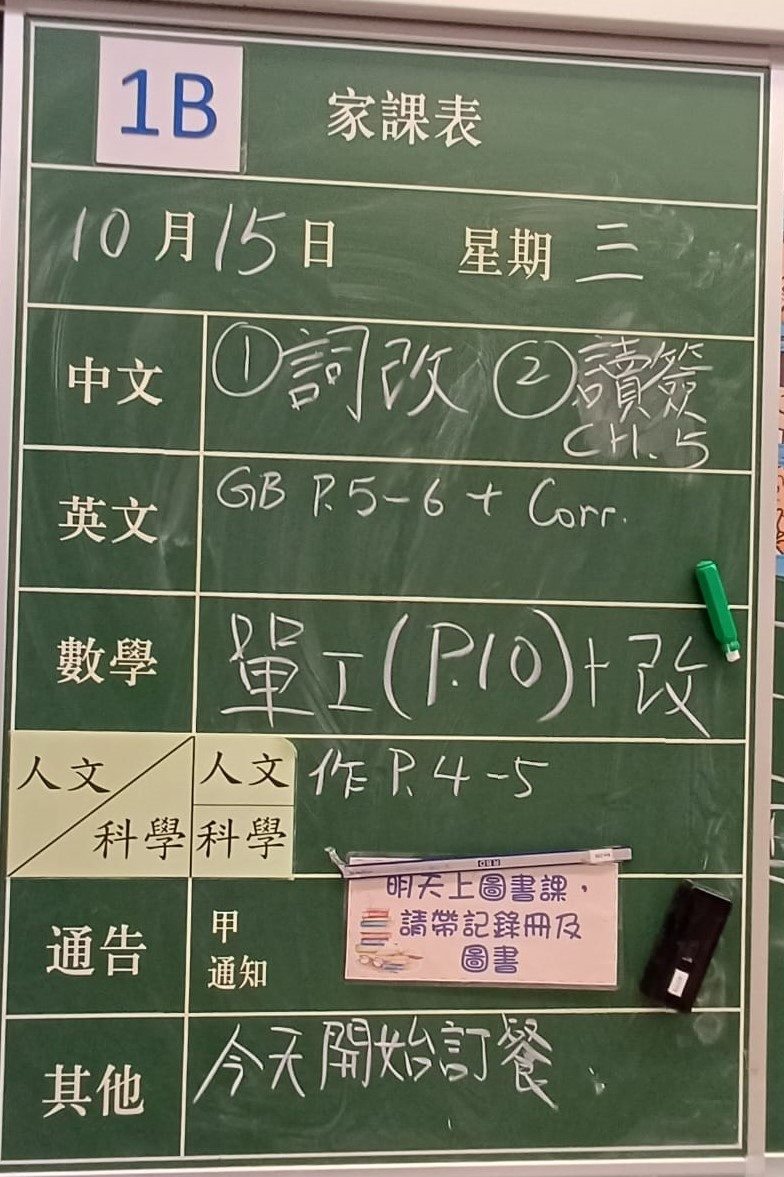 1B 家課表
10月15日 星期三
中文 ①詞改 ②讀簽
CH.5
英文 GB P.5-6 + Corr.
數學 單工(P.10)+改
人文/科學 人文 作P.4-5
科學
通告 甲
通知
明天上圖書課，
請帶記錄冊及
圖書
其他 今天開始訂餐